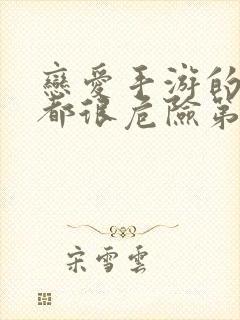 戀愛手游的
都很危險第
宋雪雲